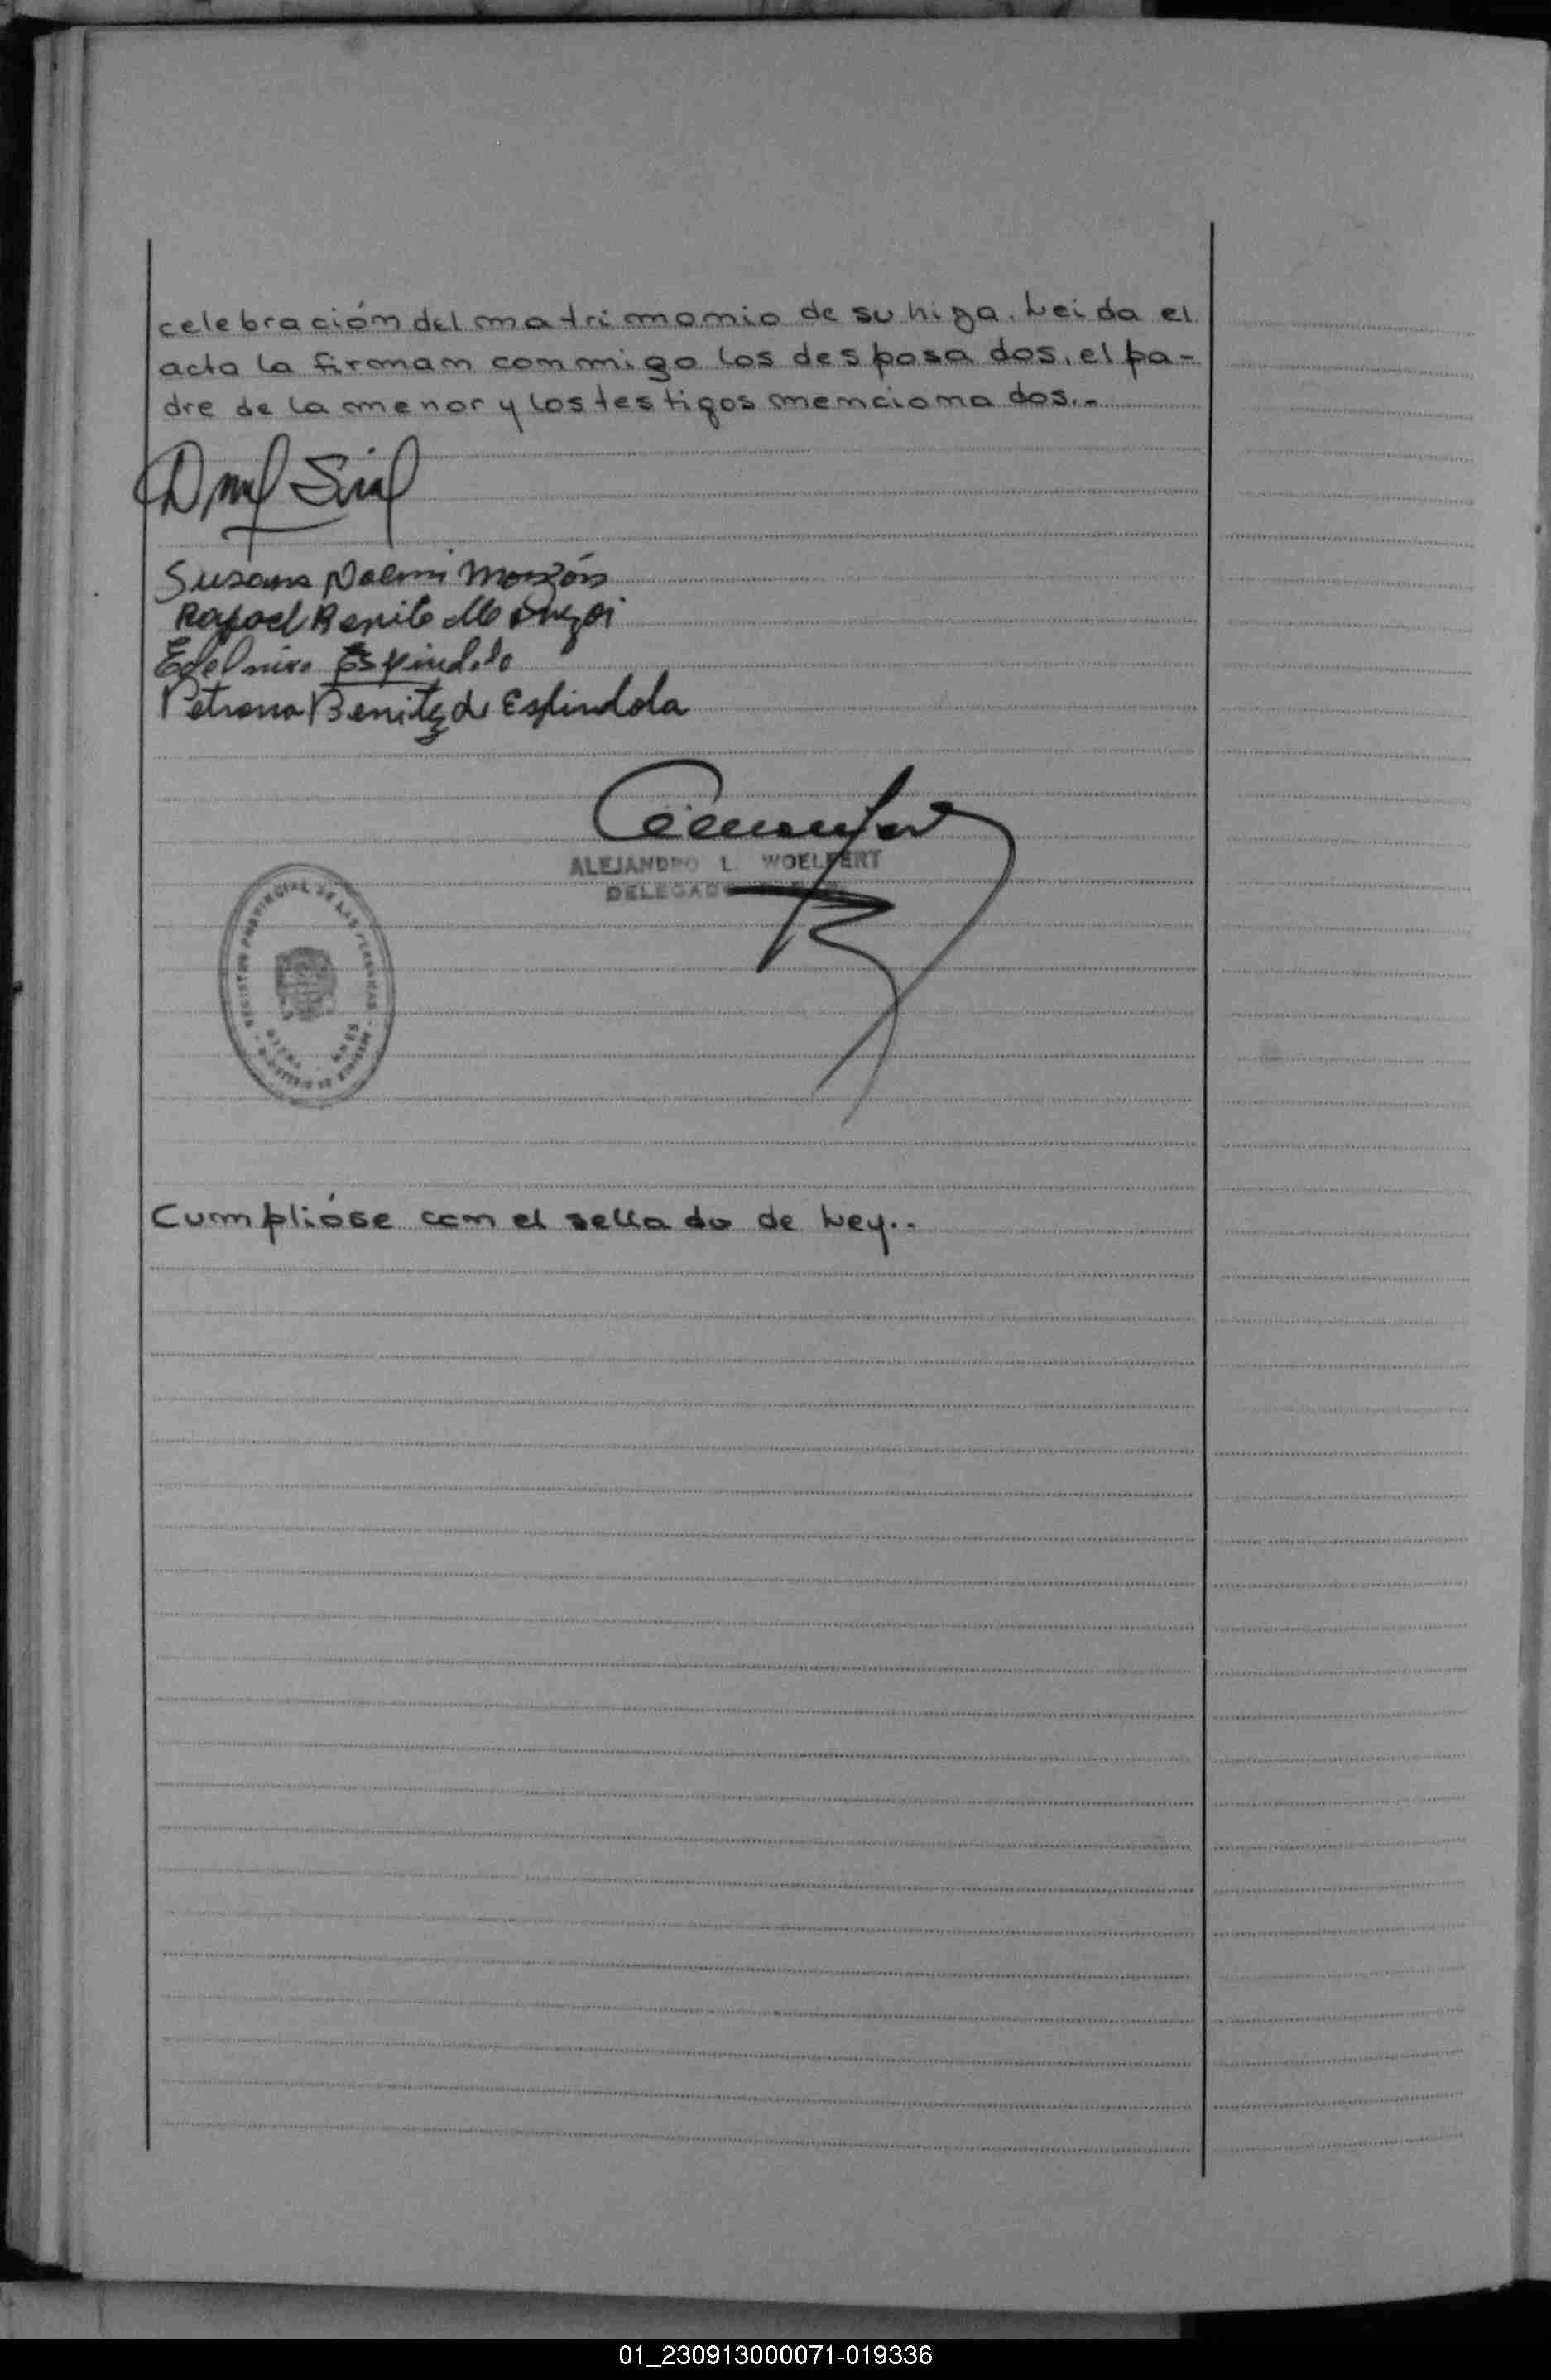 celebración del matrimonio de su hija. Leida el
acta la firman conmigo los desposados, el pa-
dre de la menor y los testigos mencionados.-
Susana Noemi Monzón
Rafael Benito
Espindola
Petrona Benitez de Espindola
ALEJANDRO L. WOELFERT
DELEGADO
REGISTRO PROVINCIAL DE LAS PERSONAS
Cumplióse con el sellado de Ley..
01_230913000071-019336